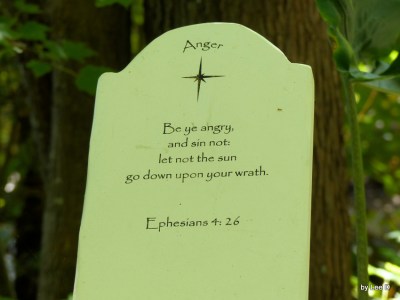 Anger
Be ye angry,
and sin not:
let not the sun
go down upon your wrath.
Ephesians 4: 26